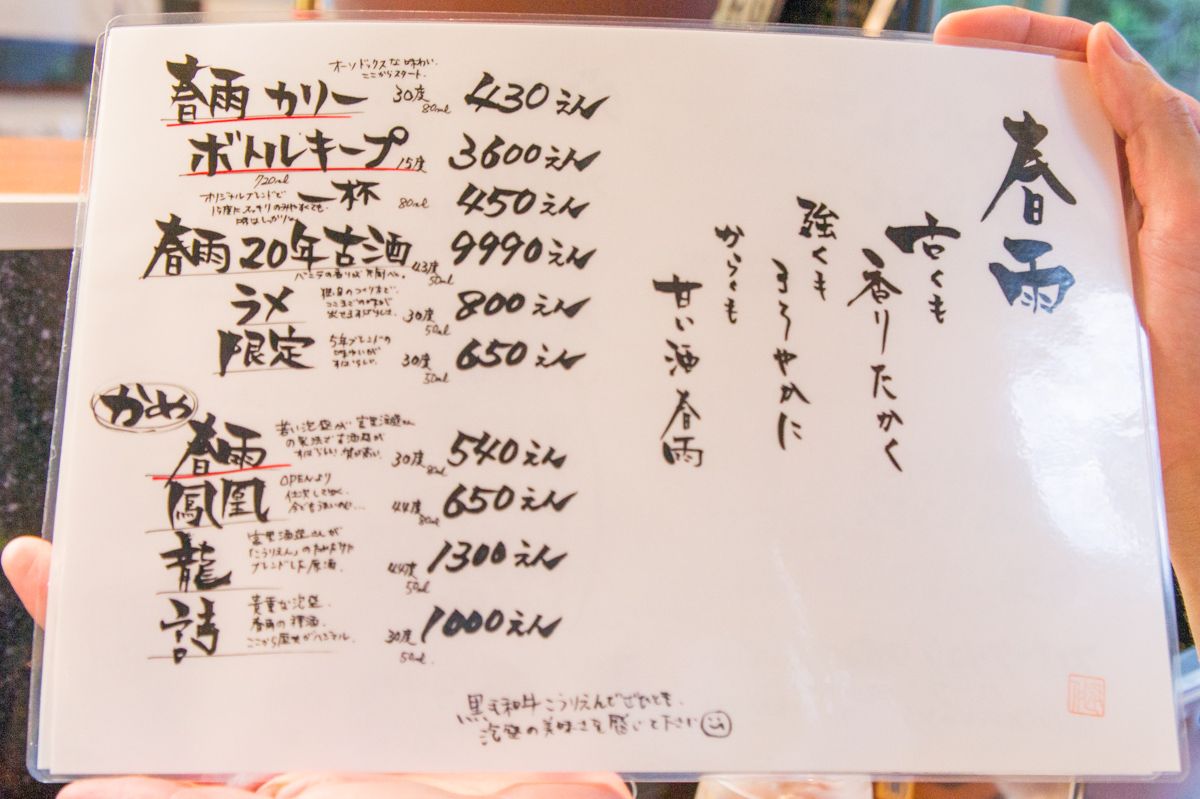 春雨
古くも
香りたかく
強くも
まろやかに
からくも
甘い酒 春雨
オーソドックスな味わい。
ここからスタート。
春雨 カリー 30度 80ml 430えん
ボトルキープ 15度 3600えん
720ml
一杯 80ml 450えん
オリジナルブレンドで
15度にスッキリのみやすくても。
味はしっかり。
春雨 20年古酒 43度 50ml 9990えん
バニラの香りが
ラメ 30度 50ml 800えん
ここまでの味が
限定 30度 50ml 650えん
5年ブレンドの
味わいが
すばらしい。
かめ
春雨 30度 80ml 540えん
若い泡盛が宮里酒造さん
の製法で古酒感が
すばらしい
鳳凰 44度 80ml 650えん
OPENより
仕次して
今でもうまいのに…
龍 44度 50ml 1300えん
宮里酒造さんが
「こうりえん」のためだけに
ブレンドした原酒。
詩 30度 50ml 1000えん
貴重な泡盛。
春雨の
ここから歴史が
黒毛和牛こうりえんでぜひとも、
泡盛の美味さを感じて下さい